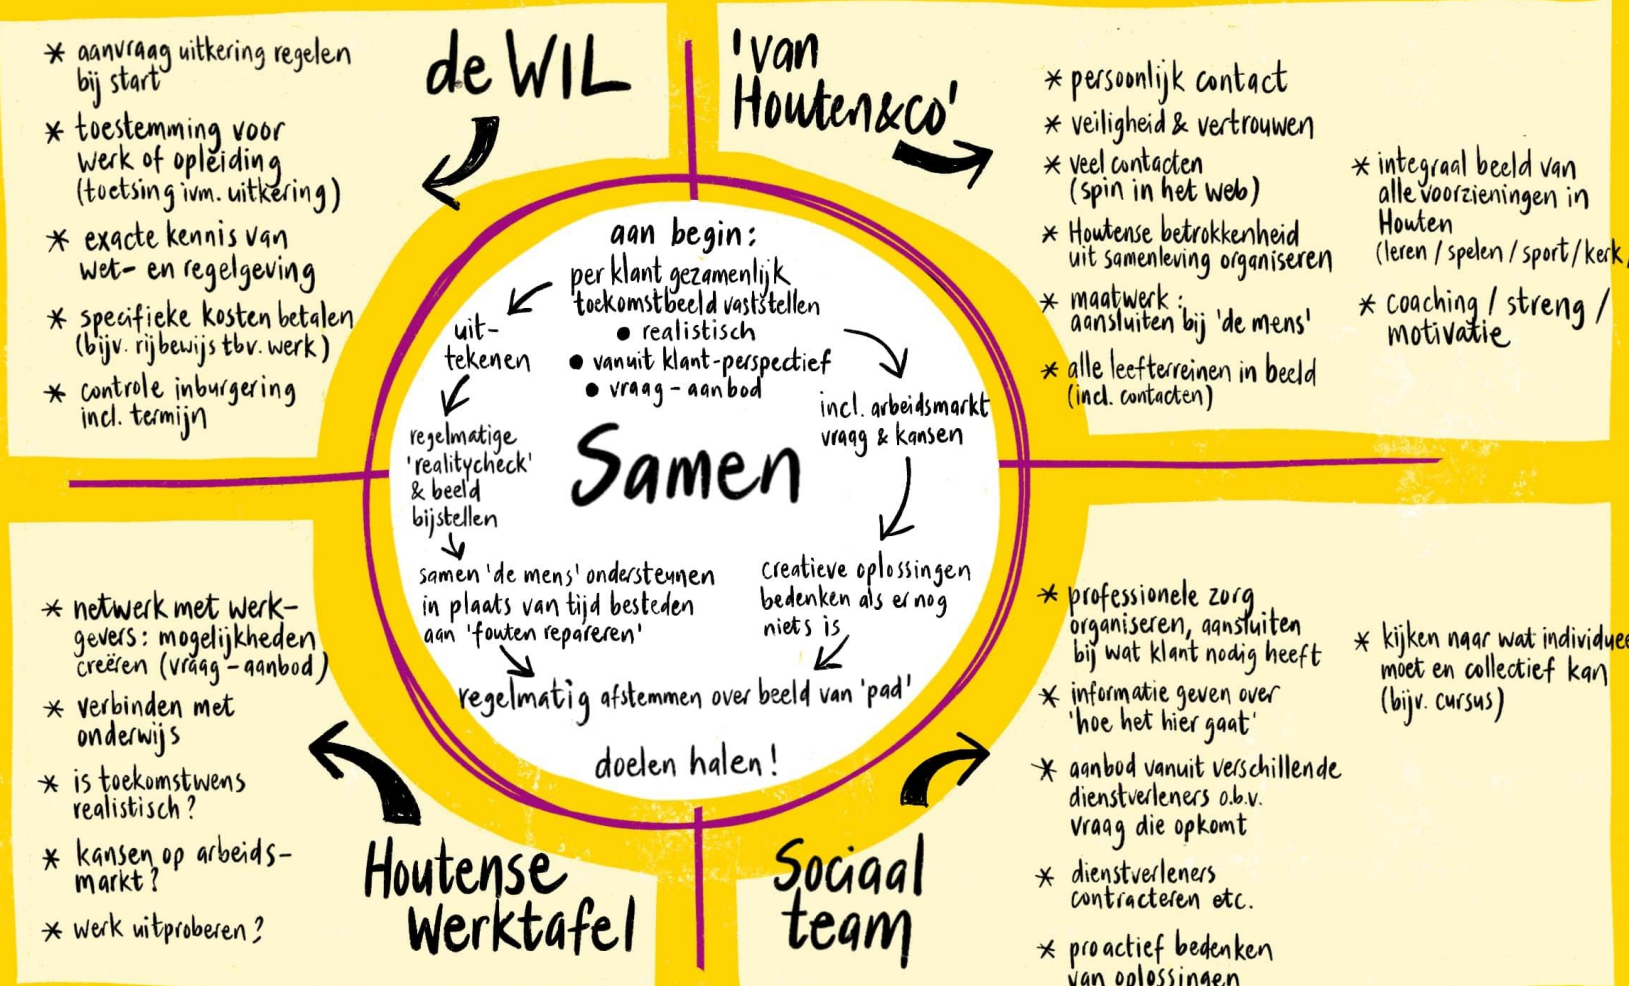 de WIL
* aanvraag uitkering regelen
bij start
* toestemming voor
werk of opleiding
(toetsing ivm. uitkering)
* exacte kennis van
wet- en regelgeving
* specifieke kosten betalen
(bijv. rijbewijs tbv. werk)
* controle inburgering
incl. termijn
'van
Houten&co'
* persoonlijk contact
* veiligheid & vertrouwen
* veel contacten
(spin in het web)
* Houtense betrokkenheid
uit samenleving organiseren
* maatwerk:
aansluiten bij 'de mens'
* alle leefterreinen in beeld
(incl. contacten)
* integraal beeld van
alle voorzieningen in
Houten
(leren / spelen / sport / kerk /
* coaching / streng /
motivatie
aan begin:
per klant gezamenlijk
toekomstbeeld vaststellen
• realistisch
• vanuit klant-perspectief
• vraag - aanbod
uit-
tekenen
regelmatige
'realitycheck'
& beeld
bijstellen
incl. arbeidsmarkt
vraag & kansen
Samen
samen 'de mens' ondersteunen
in plaats van tijd besteden
aan 'fouten repareren'
creatieve oplossingen
bedenken als er nog
niets is
regelmatig afstemmen over beeld van 'pad'
doelen halen!
* netwerk met werk-
gevers: mogelijkheden
creëren (vraag - aanbod)
* verbinden met
onderwijs
* is toekomstwens
realistisch?
* kansen op arbeids-
markt?
* werk uitproberen?
Houtense
Werktafel
Sociaal
team
* professionele zorg
organiseren, aansluiten
bij wat klant nodig heeft
* informatie geven over
'hoe het hier gaat'
* aanbod vanuit verschillende
dienstverleners o.b.v.
vraag die opkomt
* dienstverleners
contracteren etc.
* proactief bedenken
van oplossingen
* kijken naar wat individuee
moet en collectief kan
(bijv. cursus)